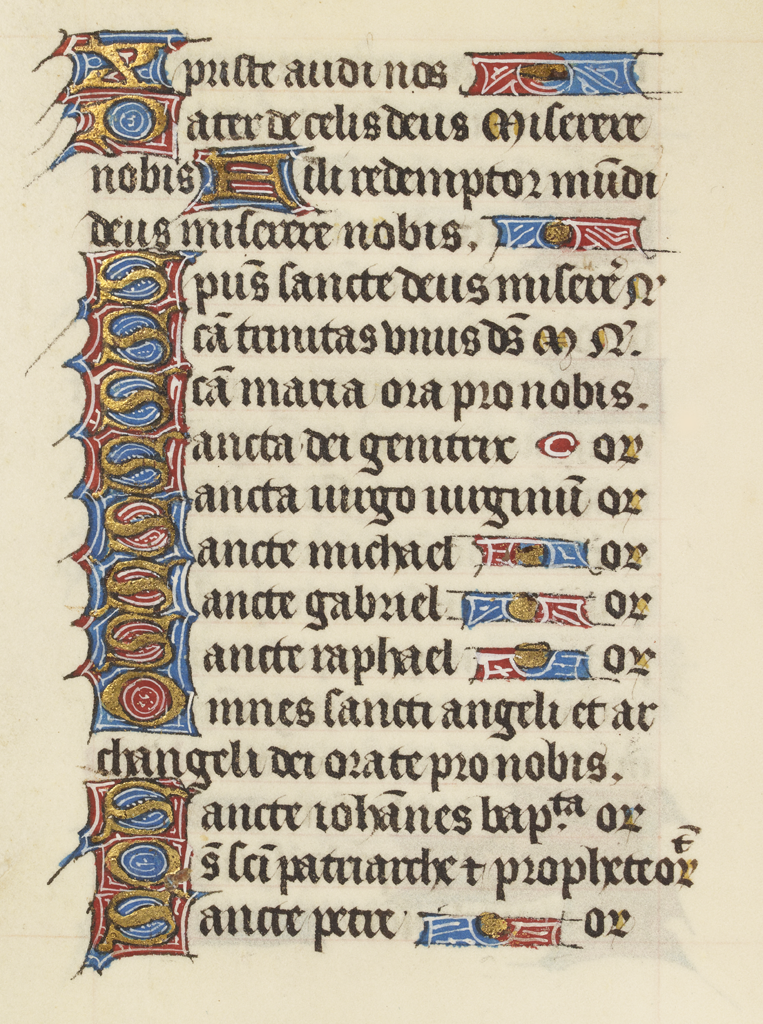 Xpriste audi nos
Pater de celis deus Miserere
nobis Fili redemptor mūdi
deus miserere nobis.
Spūs sancte deus miserēr N
Scā trinitas vnus dū̄s M N.
Scā maria ora pro nobis.
Sancta dei genitrix or
Sancta uirgo uirginū or
Sancte michael or
Sancte gabriel or
Sancte raphael or
Omnes sancti angeli et ar
changeli dei orate pro nobis.
Sancte iohānes bap.ta or
Os̄ sc̄i patriarche ⁊ prophete or̄t
Sancte petre or